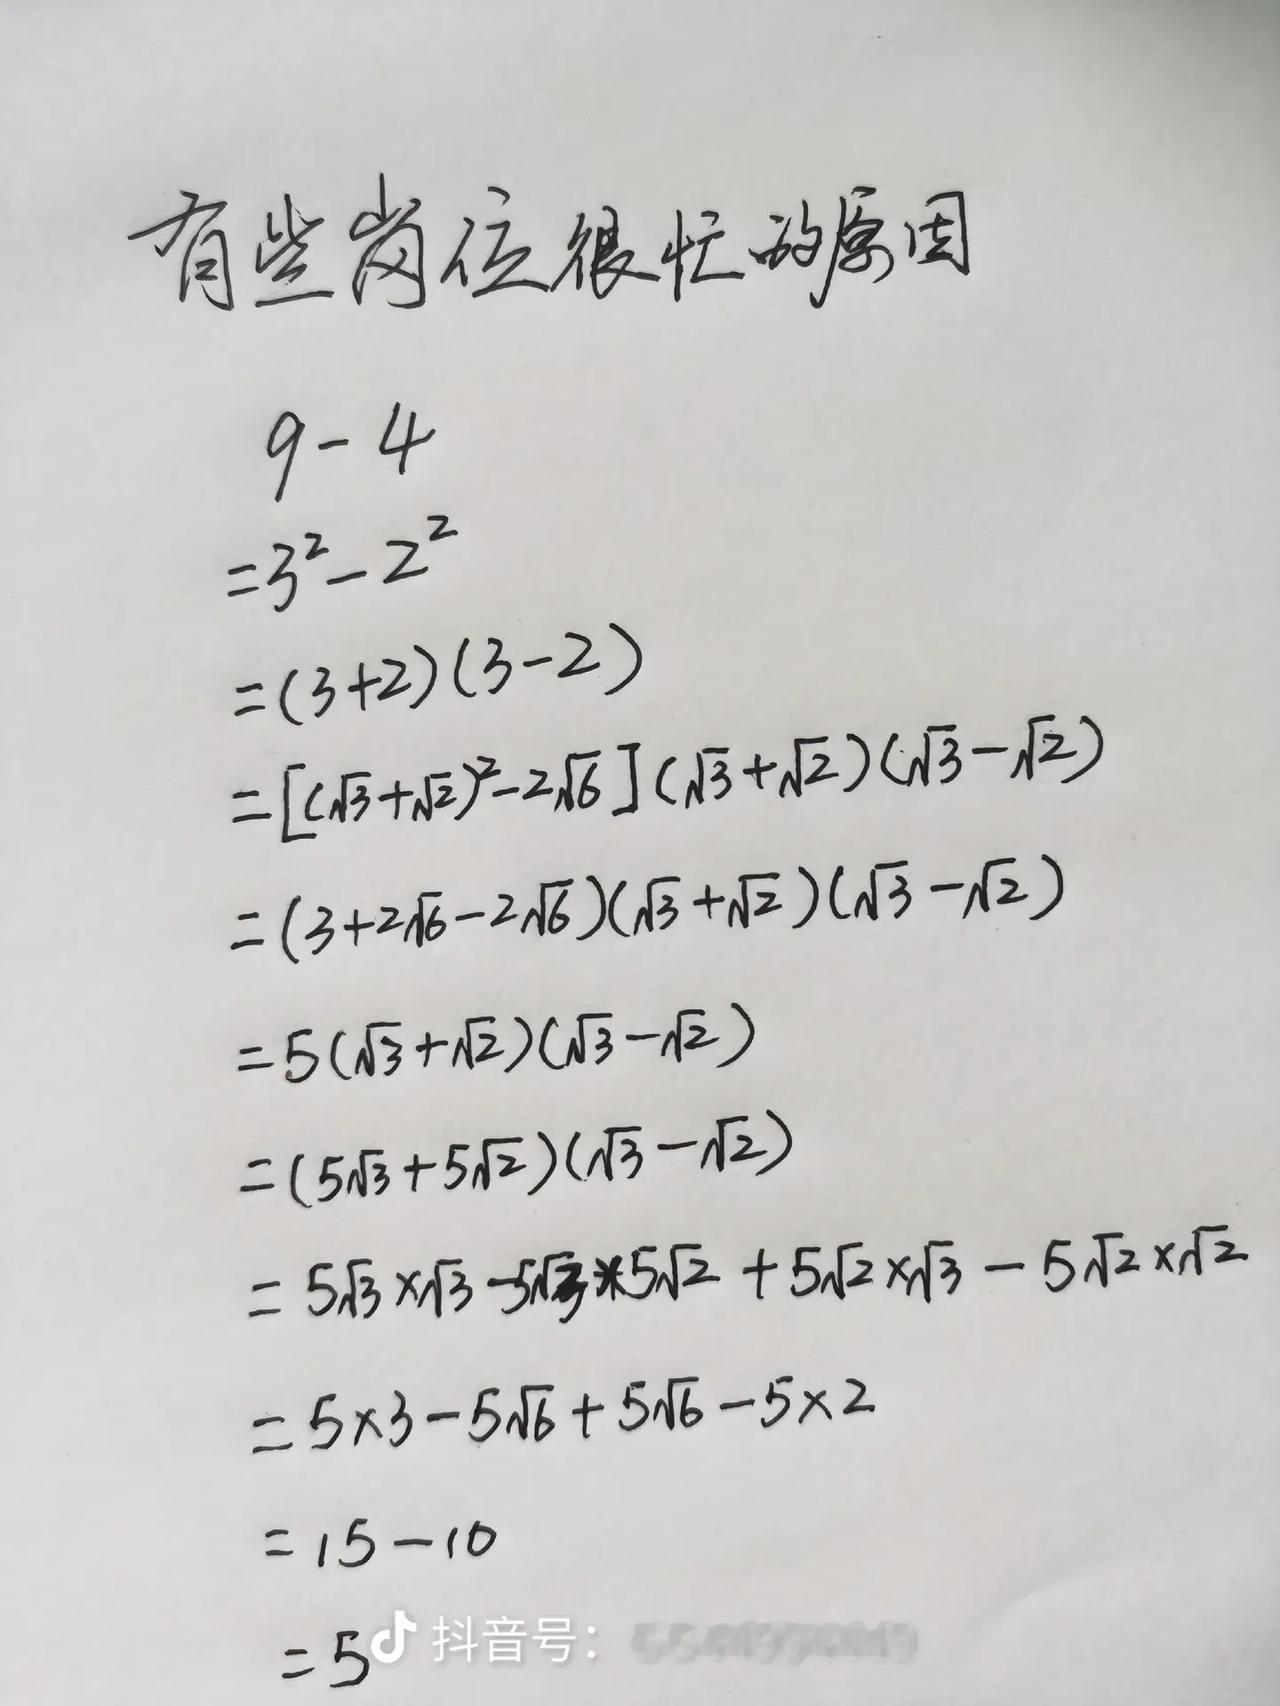 有些岗位很忙的原因
9-4
=3²-2²
=(3+2)(3-2)
=[(√3+√2)²-2√6](√3+√2)(√3-√2)
=(3+2√6-2√6)(√3+√2)(√3-√2)
=5(√3+√2)(√3-√2)
=(5√3+5√2)(√3-√2)
=5√3×√3-5√3×5√2+5√2×√3-5√2×√2
=5×3-5√6+5√6-5×2
=15-10
=5
抖音号：